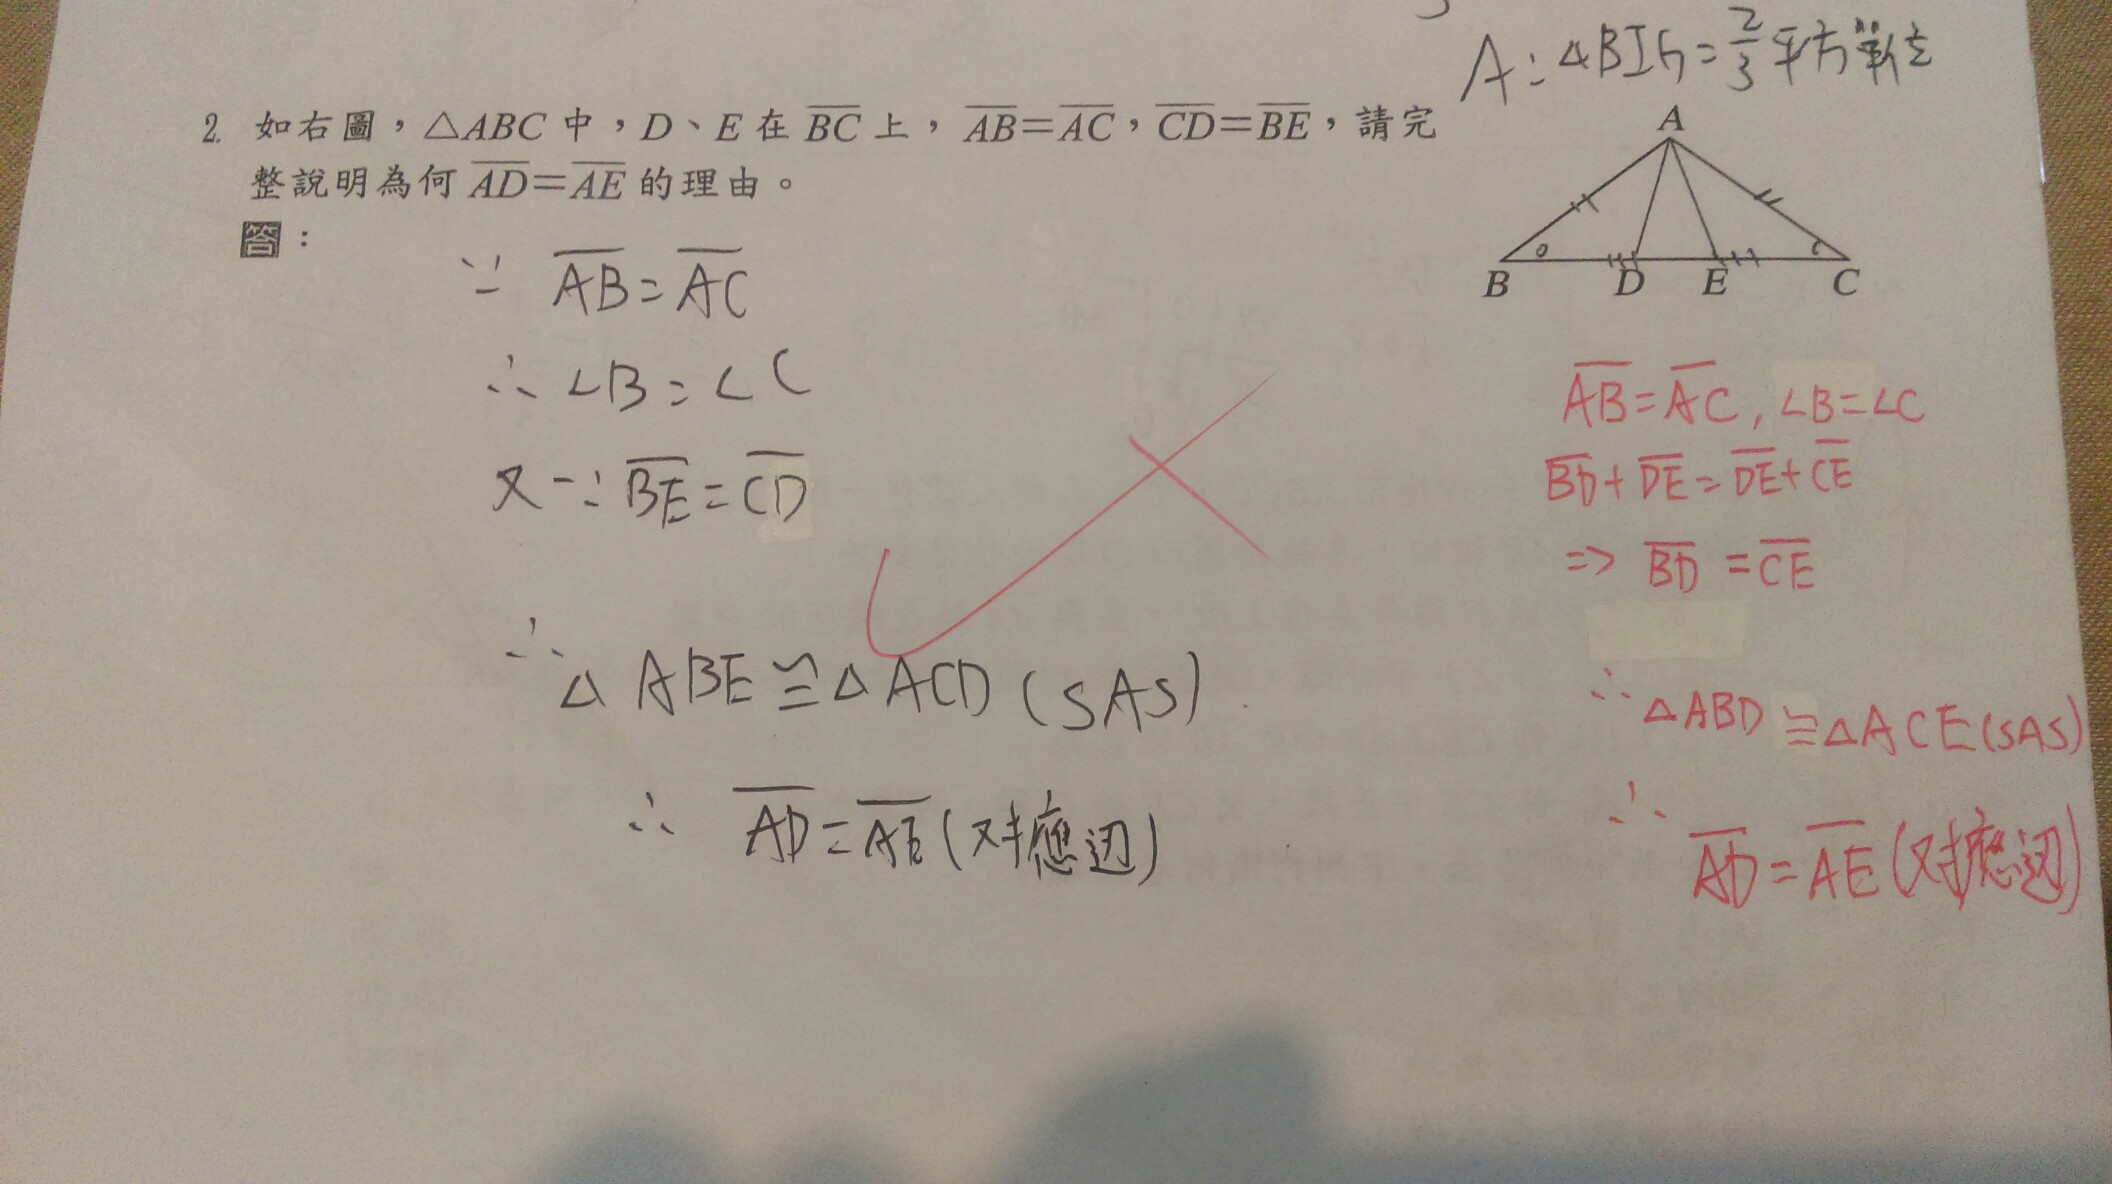 A：△BIG=2/3平方單位
2. 如右圖，△ABC 中，D、E 在 BC 上， AB=AC，CD=BE，請完
整說明為何 AD=AE 的理由。
答：
A
B
D
E
C
∵ AB=AC
∴ ∠B=∠C
又∵ BE=CD
∴ △ABE≅△ACD (SAS)
∴ AD=AE (对應边)
AB=AC, ∠B=∠C
BD+DE=DE+CE
=> BD=CE
∴ △ABD≅△ACE (SAS)
∴ AD=AE (对應边)